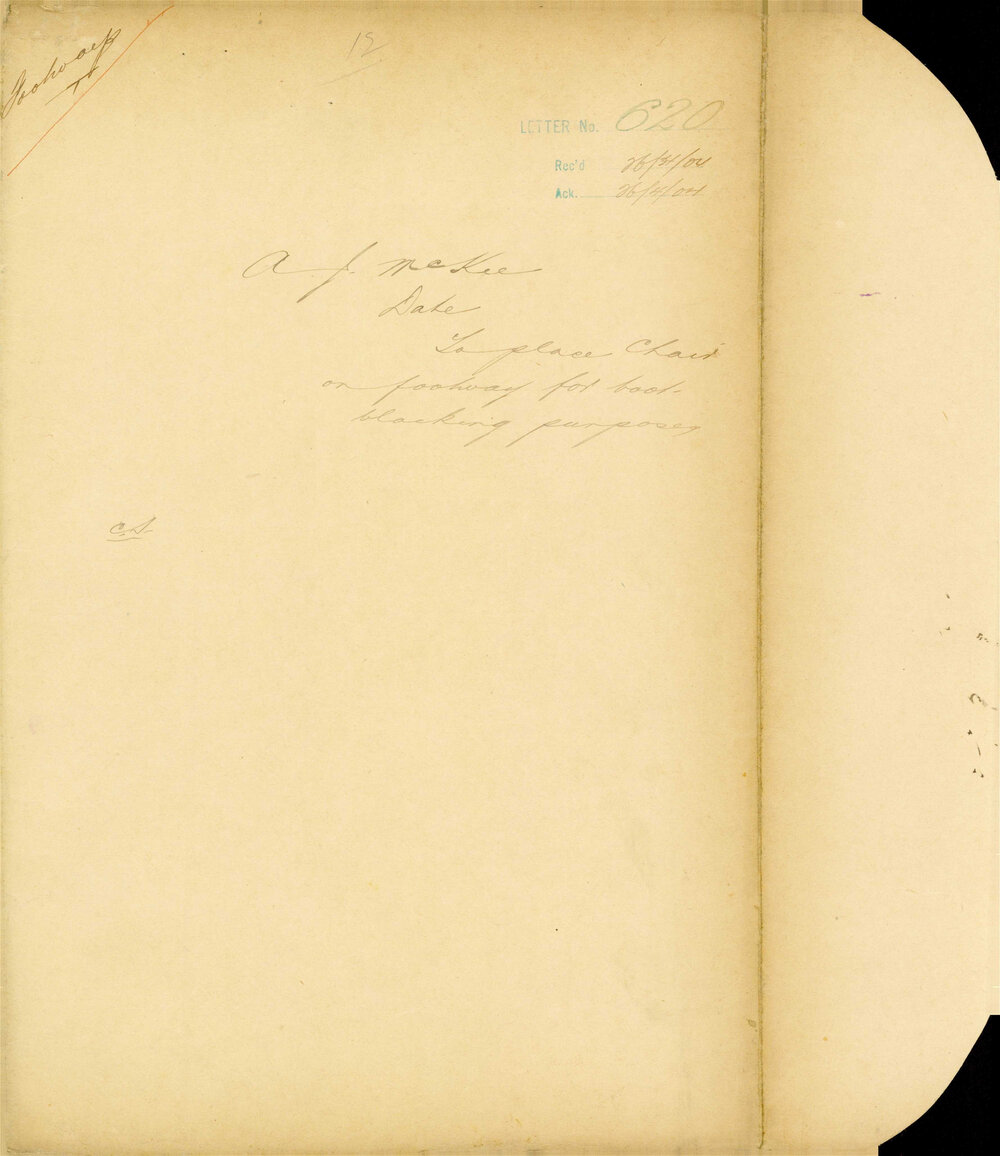 Footways
12
LETTER No. 620
Rec'd 26/4/04
Ack. 26/4/04
A J. McKee
Date
To place Chair
on footway for boot-
blacking purposes